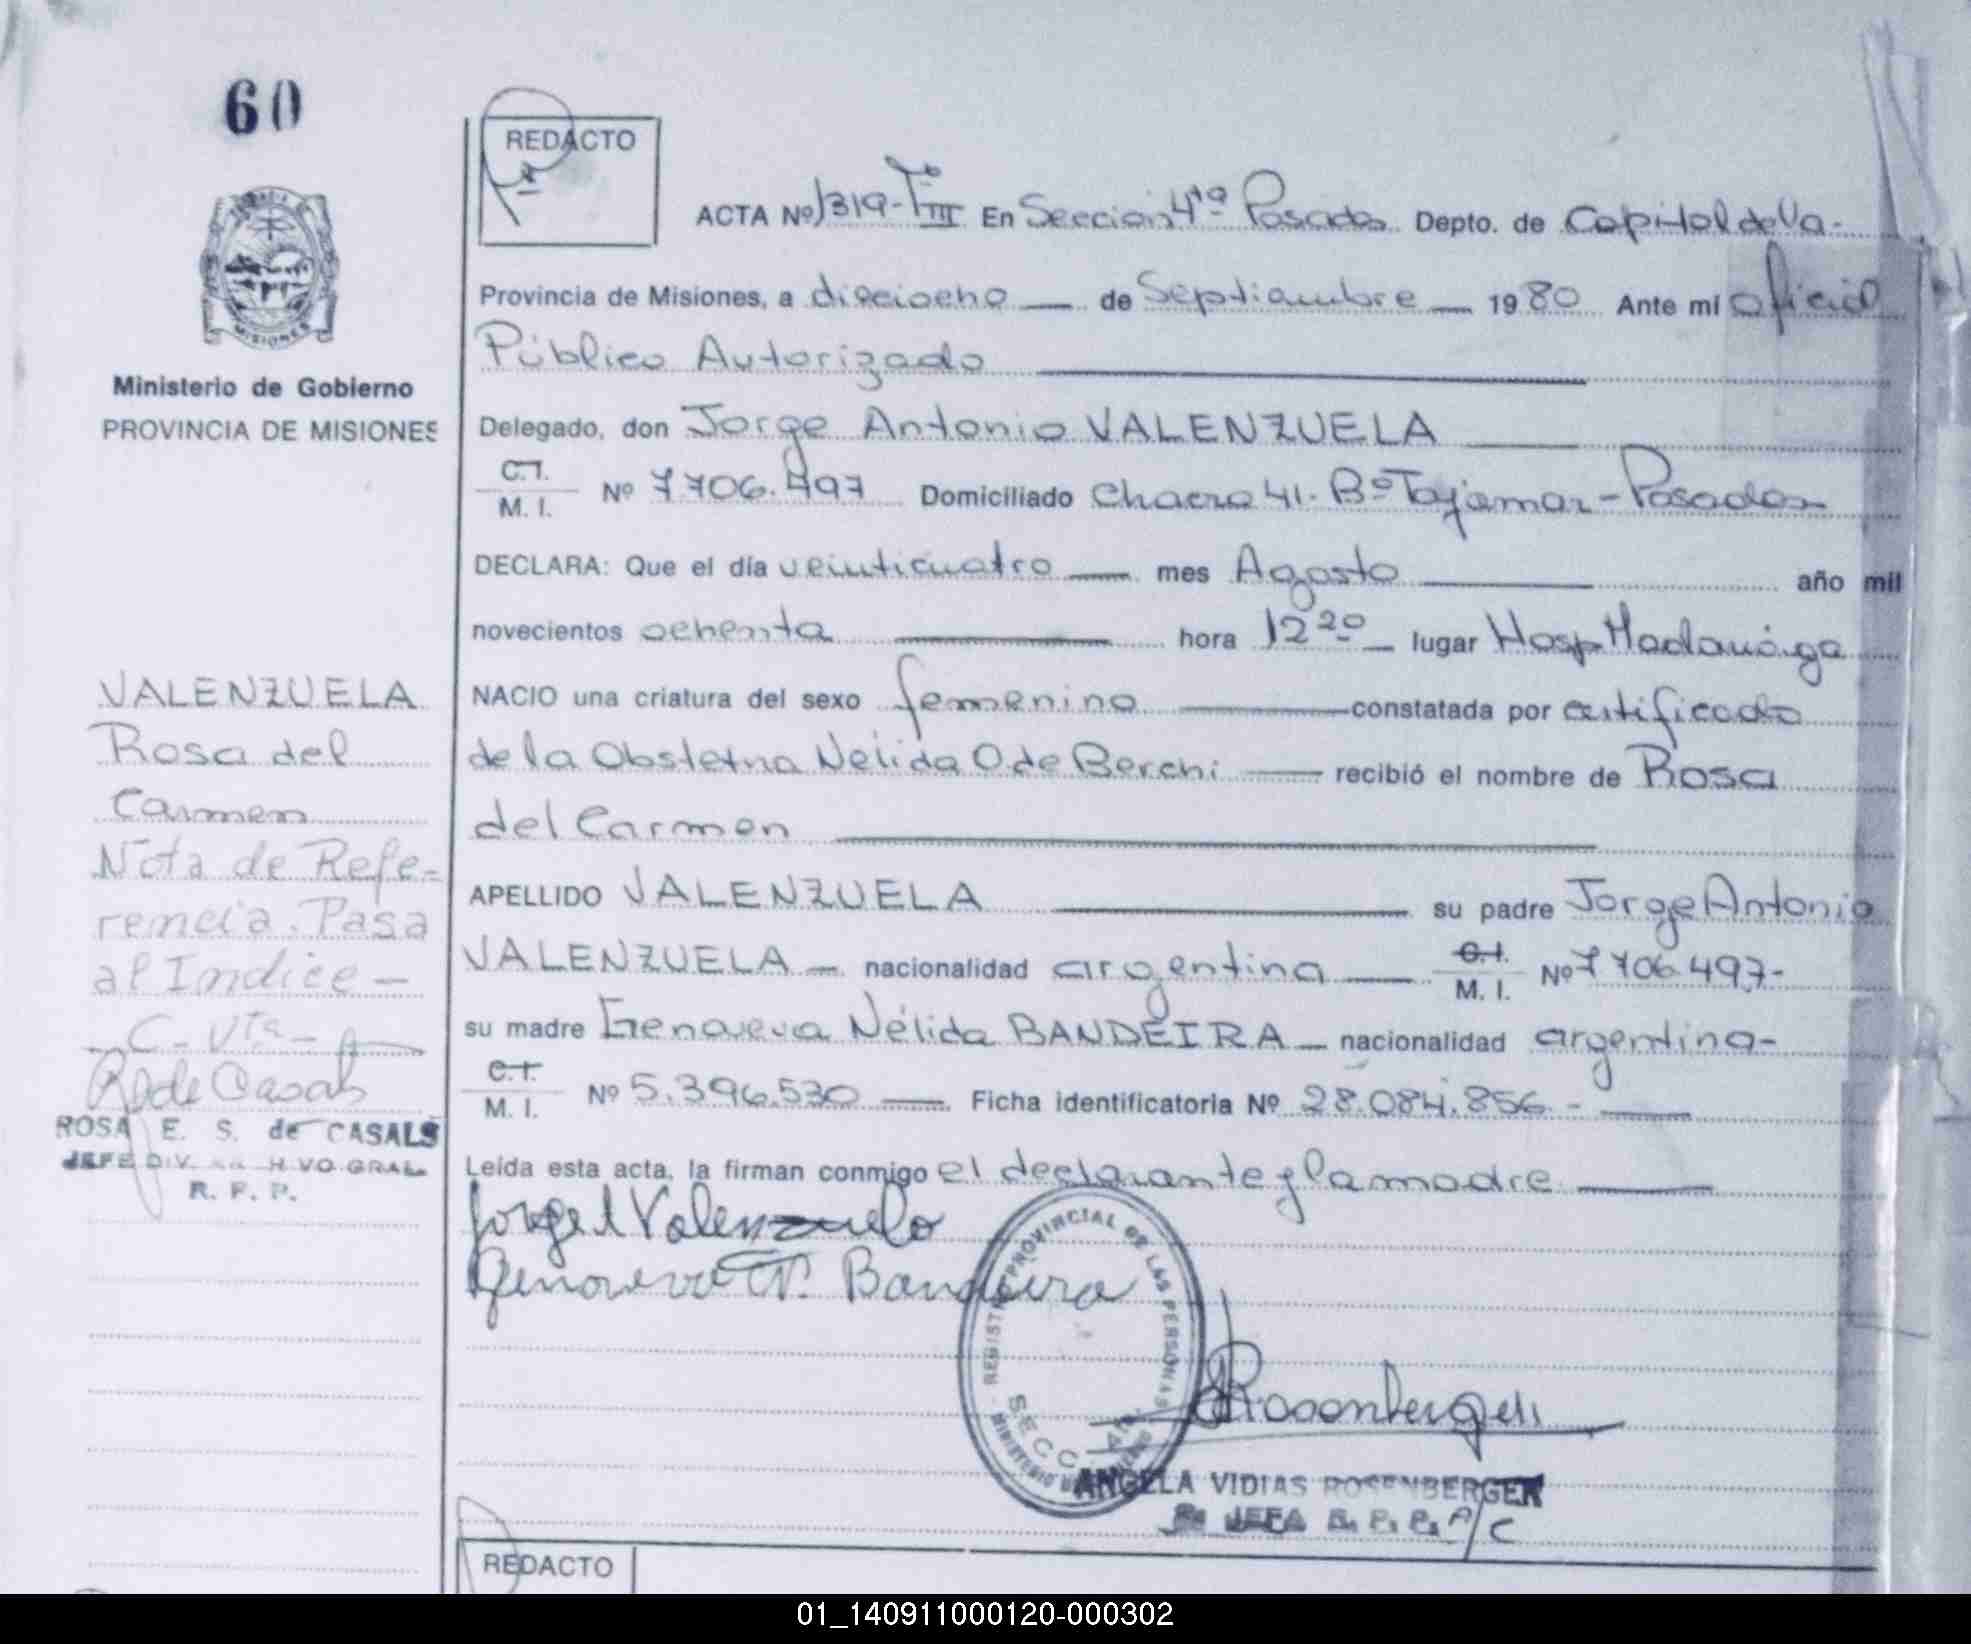 60
REDACTO
ACTA Nº 1319-Tº III En Sección 4ta Posadas Depto. de Capital de la-
MISIONES
Provincia de Misiones, a dieciocho — de Septiembre — 1980 Ante mí oficial
Público Autorizado
Ministerio de Gobierno
PROVINCIA DE MISIONES
Delegado, don Jorge Antonio VALENZUELA
C.I.
M. I. Nº 7706.497 Domiciliado Chacra 41. Bº Tajamar-Posadas
DECLARA: Que el día veinticuatro — mes Agosto — año mil
novecientos ochenta — hora 12 20 — lugar Hosp Madariaga
NACIO una criatura del sexo femenino — constatada por certificado
de la Obstetra Nelida O de Berchi — recibió el nombre de Rosa
del Carmen
APELLIDO VALENZUELA — su padre Jorge Antonio
VALENZUELA — nacionalidad argentina — C.I.
M. I. Nº 7706.497-
su madre Genoveva Nélida BANDEIRA — nacionalidad argentina-
C.I.
M. I. Nº 5.396.530 — Ficha identificatoria Nº 28.084.856.-
Leída esta acta, la firman conmigo el declarante y la madre
Jorge A Valenzuela
Genoveva N. Bandeira
VALENZUELA
Rosa del
Carmen
Nota de Refe-
rencia. Pasa
al Indice-
R de Casals
ROSA E. S. de CASALS
JEFE DIV. ARCHIVO GRAL
R. P. P.
REGISTRO PROVINCIAL DE LAS PERSONAS
SECC. 4ta.
MINISTERIO DE GOBIERNO
Rosenberger
ANGELA VIDIAS ROSENBERGER
JEFA R. P. P. A/C
REDACTO
01_140911000120-000302